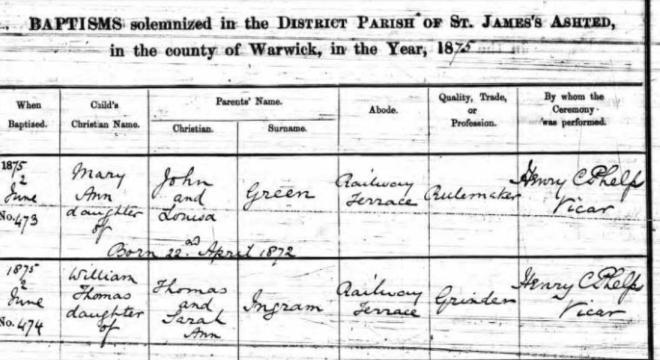 BAPTISMS solemnized in the DISTRICT PARISH OF ST. JAMES'S ASHTED,
in the county of Warwick, in the Year, 1875
When Baptized.
Child's Christian Name.
Parents' Name.
Christian.
Surname.
Abode.
Quality, Trade, or Profession.
By whom the Ceremony was performed.
1875
2
June
No. 473
Mary
Ann
daughter
of
John
and
Louisa
Green
Railway
Terrace
Rulemaker
Henry C Phelps
Vicar
Born 22nd April 1872
1875
2
June
No. 474
William
Thomas
daughter
of
Thomas
and
Sarah
Ann
Ingram
Railway
Terrace
Grinder
Henry C Phelps
Vicar